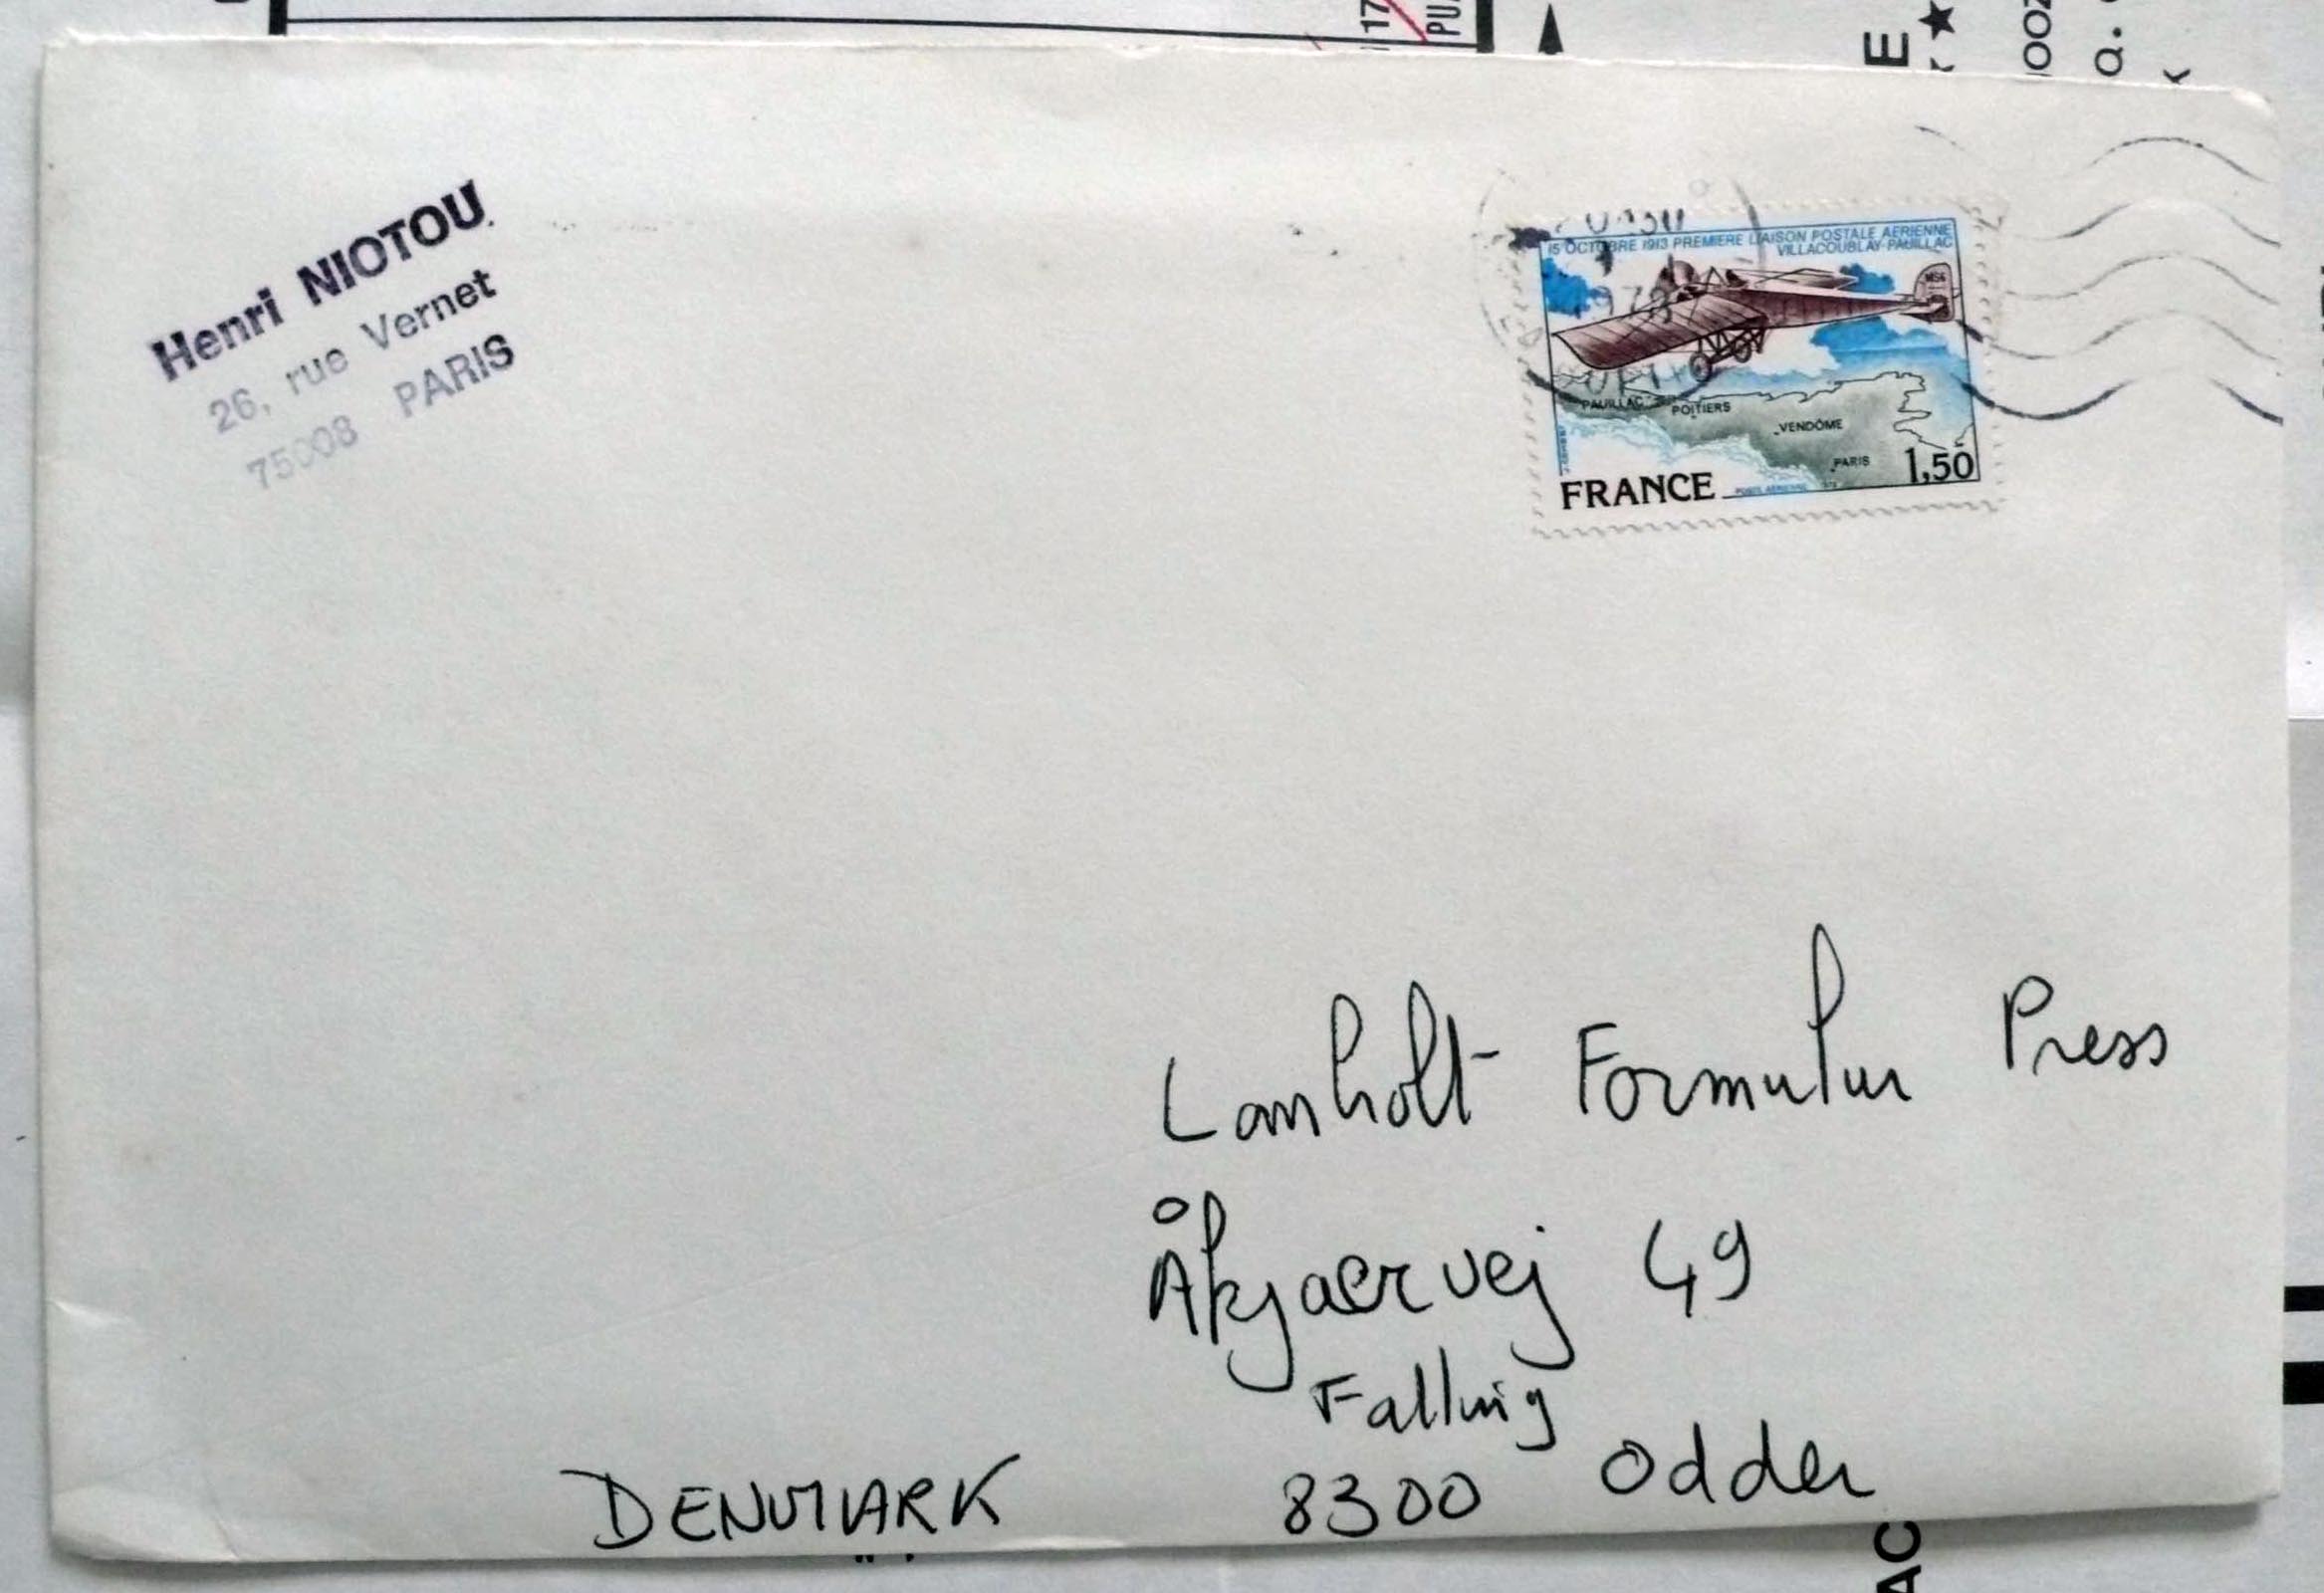 Henri NIOTOU.
26, rue Vernet
75008 PARIS
1978
15 OCTOBRE 1913 PREMIERE LIAISON POSTALE AERIENNE
VILLACOUBLAY-PAUILLAC
MS6
PAUILLAC
POITIERS
VENDÔME
PARIS
1,50
FRANCE
POSTE AERIENNE
Lomholt Formular Press
Åkjaervej 49
Falling
8300 Odder
DENMARK
17
PU
E
AC